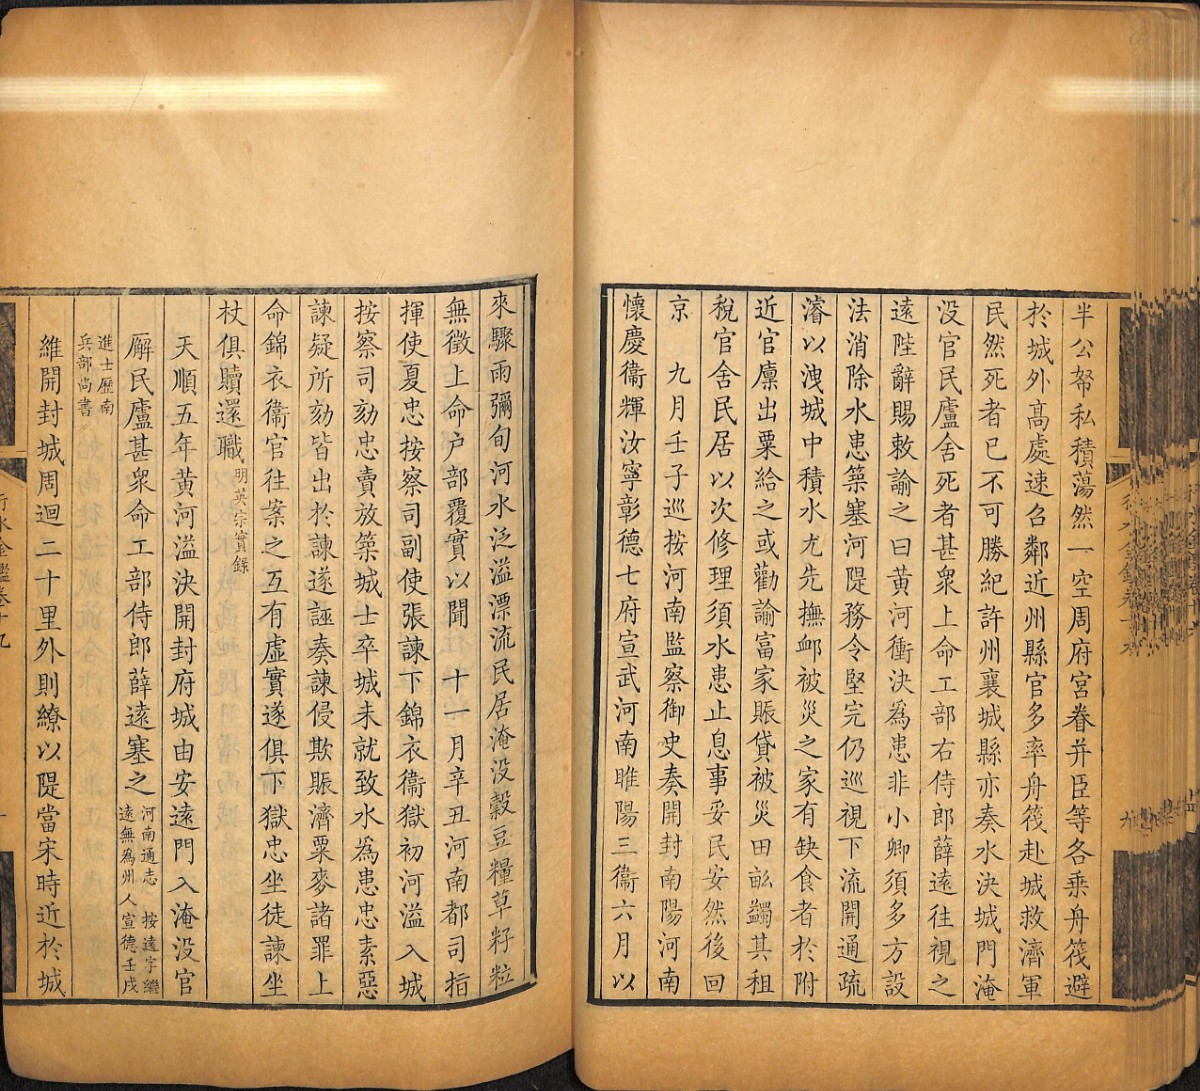 半公帑私積蕩然一空周府宮眷并臣等各乘舟筏避
於城外高處速召鄰近州縣官多率舟筏赴城救濟軍
民然死者已不可勝紀許州襄城縣亦奏水決城門淹
没官民廬舍死者甚衆上命工部右侍郎薛遠往視之
遠陛辭賜敕諭之曰黃河衝決為患非小卿須多方設
法消除水患築塞河隄務令堅完仍巡視下流開通疏
濬以洩城中積水尤先撫䘏被災之家有缺食者於附
近官廩出粟給之或勸諭富家賑貸被災田畝蠲其租
稅官舍民居以次修理須水患止息事妥民安然後回
京　九月壬子巡按河南監察御史奏開封南陽河南
懷慶衞輝汝寧彰德七府宣武河南睢陽三衞六月以
來驟雨彌旬河水泛溢漂流民居淹没穀豆糧草籽粒
無徵上命户部覆實以聞　十一月辛丑河南都司指
揮使夏忠按察司副使張諫下錦衣衞獄初河溢入城
按察司劾忠賣放築城士卒城未就致水為患忠素惡
諫疑所劾皆出於諫遂誣奏諫侵欺賑濟粟麥諸罪上
命錦衣衞官往案之互有虛實遂俱下獄忠坐徒諫坐
杖俱贖還職明英宗實錄
天順五年黃河溢決開封府城由安遠門入淹没官
廨民廬甚衆命工部侍郎薛遠塞之河南通志　按遠字繼
遠無為州人宣德壬戌
進士歷南
兵部尚書
維開封城周迴二十里外則繚以隄當宋時近於城
行水金鑑卷十九